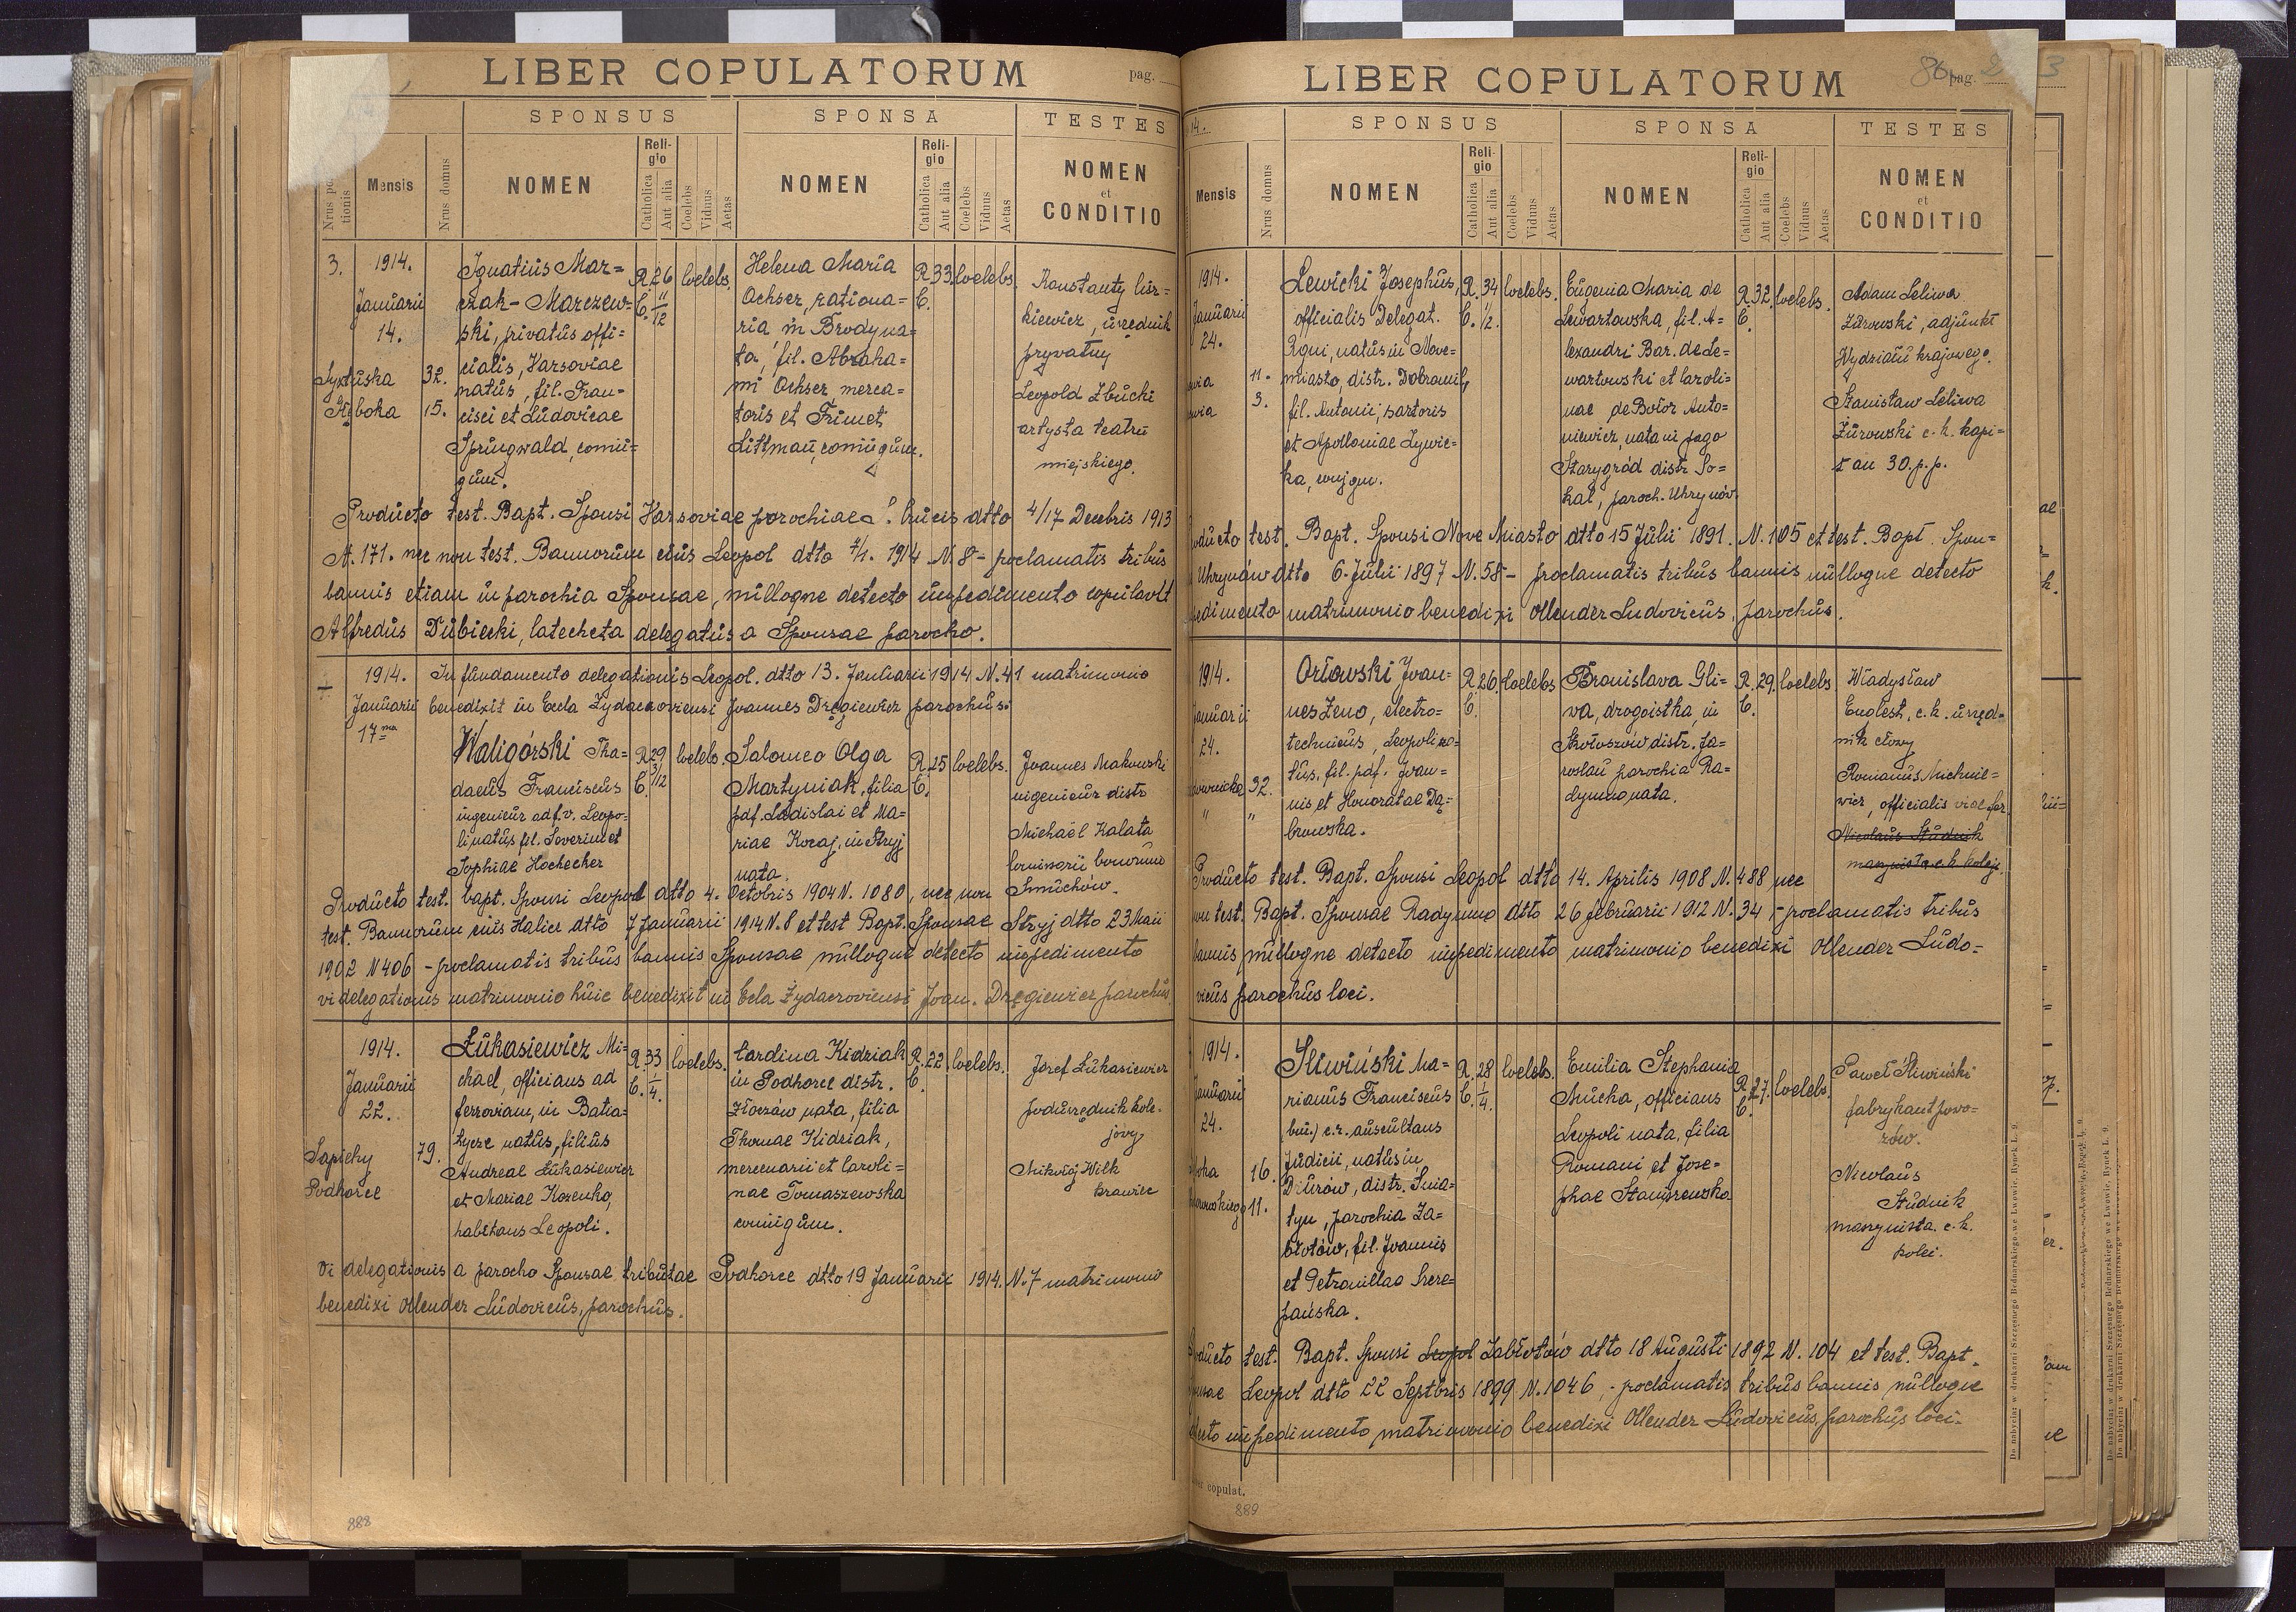 LIBER COPULATORUM
pag.
SPONSUS
SPONSA
TESTES
Mensis
Nrus domus
NOMEN
Religio
Catholica
Aut alia
Coelebs
Viduus
Aetas
NOMEN
Religio
Catholica
Aut alia
Coelebs
Viduus
Aetas
NOMEN
et
CONDITIO
3.
1914.
Januarii
14.
32.
15.
Ignatius Mar=
czak - Marczew=
ski, privatus offi=
cialis, Varsoviae
natus, fil. Fran=
cisci et Ludovicae
Springwald, conju=
gum.
R. 26
C. 11/12
Coelebs.
Helena Maria
Ochser, rationa=
ria in Brody na=
ta, fil. Abraha=
mi Ochser, merca=
toris et Frimet
Littman, conjugum.
R. 33.
C.
Coelebs.
urzędnik
prywatny
Leopold Zbucki
artysta teatru
miejskiego.
Producto test. Bapt. Sponsi Varsoviae parochiae S. Crucis dtto 4/17 Decbris 1913
N. 171. nec non test. Bannorum eius Leopol dtto 1914 N. 8 - proclamatis tribus
bannis etiam in parochia Sponsae, nulloque detecto impedimento copulavit
Alfredus Dubiecki, catecheta delegatus a Sponsae parocho.
1914.
Januarii
17ma
In fundamento delegationis Leopol. dtto 13. Januarii 1914 N. 41 matrimonio
benedixit in Eccla Joannes Dręgiewicz parochus.
Waligórski Tha=
daeus Franciscus
ingenieur adf. v. Leopo=
li natus fil. Severini et
Sophiae Hochecker
R. 29
C. 3/12
Coelebs.
Salomea Olga
Martyniak, filia
pdf. Ladislai et Ma=
riae Koraj, in Stryj
nata.
R. 25
C.
Coelebs.
Joannes Makowski
ingenieur distr
Michaël Kalata
Producto test. bapt. Sponsi Leopol dtto 4. Octobris 1904 N. 1080, nec non
test. Bannorum eius Halicz dtto 7 Januarii 1914 N. 8 et test Bapt. Sponsae Stryj dtto 23 Maii
1902 N 406 - proclamatis tribus bannis Sponsae nulloque detecto impedimento
vi delegationis matrimonio huic benedixit in Eccla Joan. Dręgiewicz parochus
1914.
Januarii
22.
Sapiehy 79.
Podhorce
Łukasiewicz Mi=
chael, officians ad
ferroviam, in Batia=
tycze natus, filius
Andreae Łukasiewicz
et Mariae Korenko,
habitans Leopoli.
R. 33
C. 1/4.
Coelebs.
Kidziak
in Podhorce distr.
Złoczów nata, filia
Thomae Kidziak,
mercenarii et Caroli=
nae Tomaszewska
conjugum.
R. 22.
C.
Coelebs.
Józef Łukasiewicz
podurzędnik kole-
jowy
Mikołaj Wilk
krawiec
Vi delegationis a parocho Sponsae tributae Podhorce dtto 19 Januarii 1914. N. 7 matrimonio
benedixi Ollender Ludovicus, parochus.
888
LIBER COPULATORUM
86. pag. 2
3
14.
SPONSUS
SPONSA
TESTES
Mensis
Nrus domus
NOMEN
Religio
Catholica
Aut alia
Coelebs
Viduus
Aetas
NOMEN
Religio
Catholica
Aut alia
Coelebs
Viduus
Aetas
NOMEN
et
CONDITIO
1914.
Januarii
24.
11.
3.
Lewicki Josephus,
officialis Delegat.
Regni, natus in Nove=
miasto, distr. Dobromil,
fil. Antonii, sartoris
et Apolloniae Lywic=
ka, conjgum.
R. 34
C. 1/2.
Coelebs.
Eugenia Maria de
Lewartowska, fil. A=
lexandri Bar. de Le=
wartowski et Caroli=
nae de Bołoz Anto=
niewicz, nata in pago
Starygród distr. So=
kal, paroch. Uhrynów.
R. 32.
C.
Coelebs.
Adam Leliwa
Żurowski, adjunkt
Wydziału krajowego.
Stanisław Leliwa
Żurowski c. k. kapi=
tan 30. p. p.
test. Bapt. Sponsi Nove Miasto dtto 15 Julii 1891. N. 105 et test. Bapt. Spon=
Uhrynów dtto 6. Julii 1897 N. 58 - proclamatis tribus bannis nulloque detecto
matrimonio benedixi Ollender Ludovicus, parochus.
1914.
Januarii
24.
32.
" "
Orłowski Joan=
nes Zeno, electro=
technicus, Leopoli na=
tus, fil. pdf. Joan=
nis et Honoratae Dą=
browska.
R. 26.
C.
Coelebs
Bronislava Gli=
va, drogoistka, in
Skołoszów distr. Ja=
roslau parochia Ra=
dymno nata.
R. 29.
C.
Coelebs
Władysław
Englest, c. k. urzęd=
nik cłowy
Romanus Michnie=
wicz, officialis viae fer.
Nicolaus Studnik
maszynista c. k. kolej.
Producto test. Bapt. Sponsi Leopol dtto 14. Aprilis 1908 N. 488 nec
non test. Bapt. Sponsae Radymno dtto 26 februarii 1912 N. 34, - proclamatis tribus
bannis, nulloque detecto impedimento matrimonio benedixi Ollender Ludo=
vicus parochus loci.
1914.
Januarii
24.
16.
11.
Śliwiński Ma=
rianus Franciscus
(bin.) c. r. auscultans
Judicii, natus in
Dżurów, distr. Śnia=
tyn, parochia Za=
błotów, fil. Joannis
et Petronillae Szcze=
pańska.
R. 28
C. 1/4.
Coelebs.
Emilia Stephania
Anucha, officians
Leopoli nata, filia
Romani et Jose=
phae
R. 27.
C.
Coelebs.
Paweł Śliwiński
fabrykant powo=
zów.
Nicolaus
Studnik
maszynista. c. k.
kolei.
test. Bapt. Sponsi Leopol Zabłotów dtto 18 Augusti 1892 N. 104 et test. Bapt.
Leopol dtto 22 Septbris 1899 N. 1046, - proclamatis tribus bannis nulloque
impedimento matrimonio benedixi Ollender Ludovicus, parochus loci.
copulat.
889
Do nabycia w drukarni Szczęsnego Bednarskiego we Lwowie, Rynek L. 9.